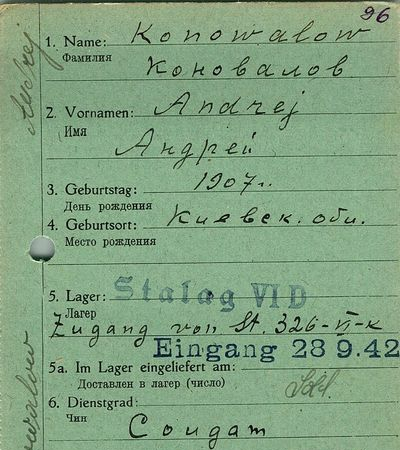 96
1. Name: Konowalow
Фамилия
Коновалов
2. Vornamen: Andrej
Имя
Андрей
3. Geburtstag: 1907 г.
День рождения
4. Geburtsort: Киевск. обл.
Место рождения
5. Lager: Stalag VI D
Лагер
Zugang von St. 326-VI-K
Eingang 28 9.42
5a. Im Lager eingeliefert am:
Доставлен в лагер (число)
6. Dienstgrad:
Чин
Солдат
Andrej